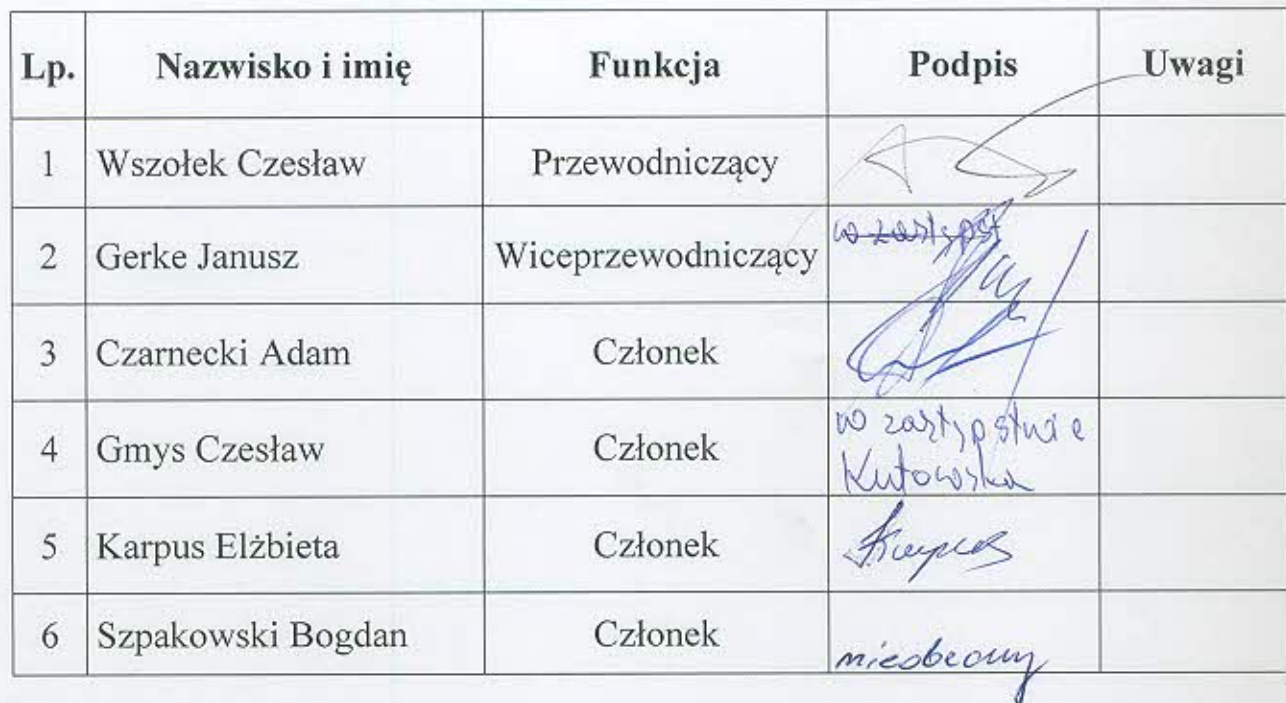 Lp. Nazwisko i imię Funkcja Podpis Uwagi
1 Wszołek Czesław Przewodniczący
2 Gerke Janusz Wiceprzewodniczący w zastępst
3 Czarnecki Adam Członek
4 Gmys Czesław Członek w zastępstwie
Kutowska
5 Karpus Elżbieta Członek Karpus
6 Szpakowski Bogdan Członek nieobecny